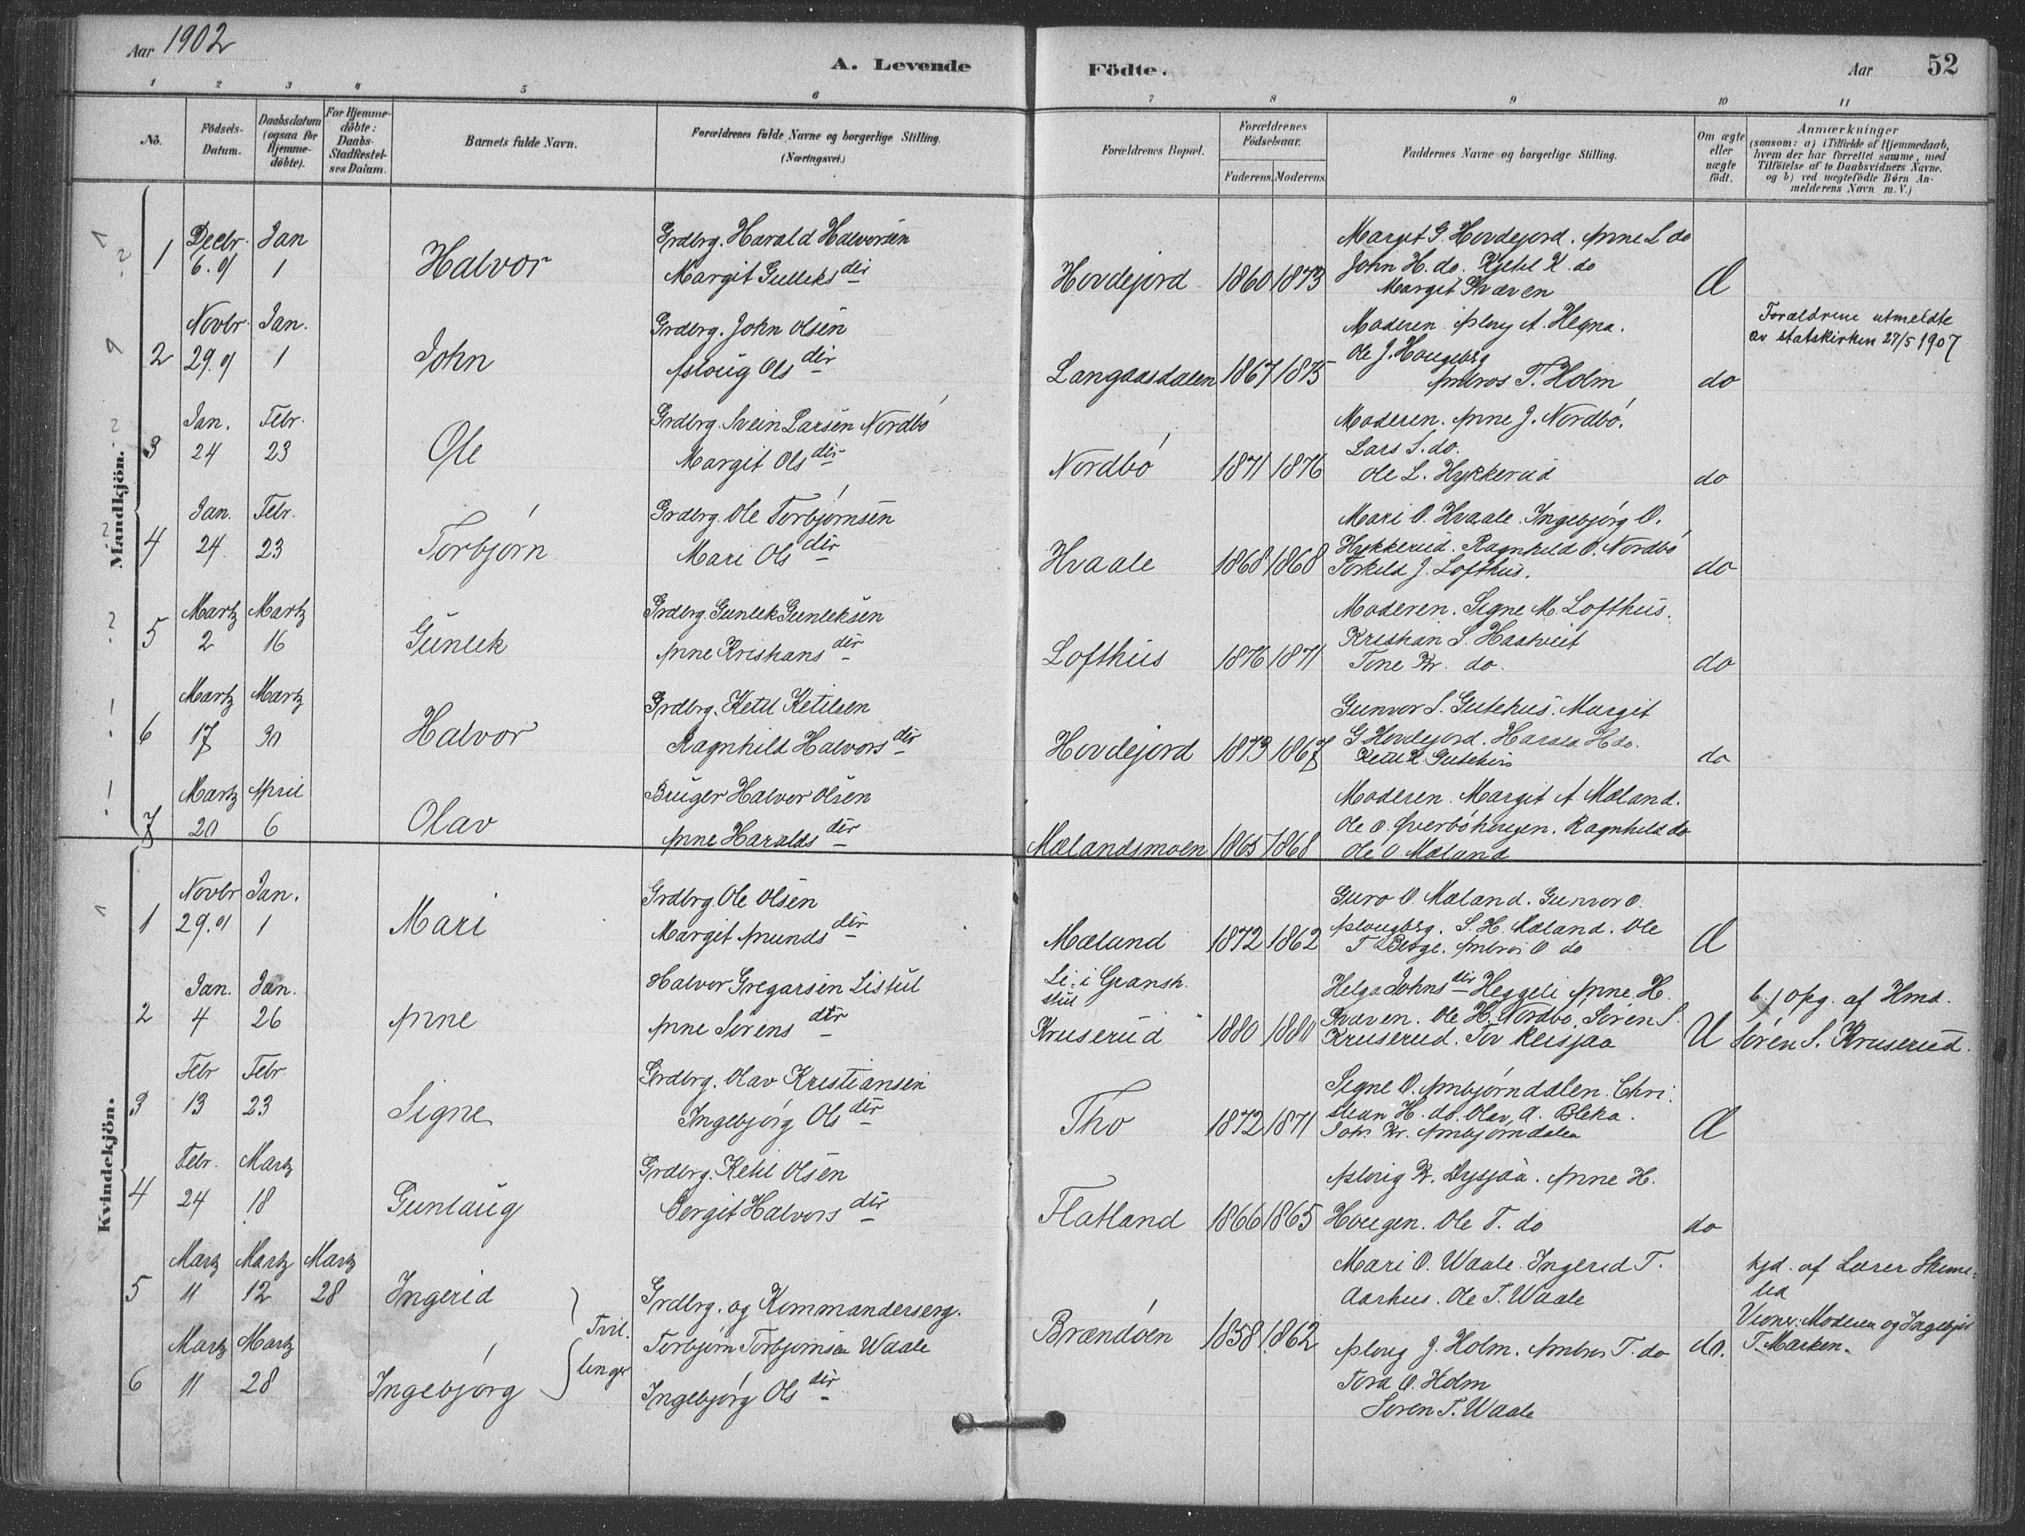 Aar 1902
A. Levende
Födte.
Aar
52
1 2 3 4 5 6 7 8 9 10 11
No.
Födsels-
Datum.
Daabsdatum
(ogsaa for
Hjemme-
döbte).
For Hjemme-
döbte:
Daabs-
Stadfæstel-
ses Datum.
Barnets fulde Navn.
Forældrenes fulde Navne og borgerlige Stilling.
(Næringsvei.)
Forældrenes Bopæl.
Forældrenes
Födselsaar.
Faderens. Moderens.
Faddernes Navne og borgerlige Stilling.
Om ægte
eller
uægte
födt.
Anmærkninger
(saasom: a) i Tilfælde af Hjemmedaab,
hvem der har forrettet samme, med
Tilföielse af to Daabsvidners Navne.
og b) ved uægtefödte Börn An-
melderens Navn m. V.)
Mandkjön.
1
Decbr. Jan
6.01 1
Halvor
Grdbrg. Harald Halvorsen
Margit Gulleksdtr
Hovdejord 1860 1873
Margit G. Hovdejord. Anne L do
John H. do. Kjetil K. do
Margit Skræven
Æ
2
Novbr. Jan.
29.01 1
John
Grdbrg. John Olsen
Asloug Olsdtr
Langaasdalen 1867 1875
Moderen. Asloug A. Hegna.
Ole J. Hougeberg
Ambros T. Holm
do
Forældrene utmeldte
av statskirken 27/5 1907
3
Jan. Febr.
24 23
Ole
Grdbrg. Svein Larsen Nordbö
Margit Olsdtr
Nordbö 1871 1876
Moderen. Anne J. Nordbö.
Lars S. do.
Ole L. Hykkerud
do
4
Jan. Febr.
24 23
Torbjörn
Grdbrg. Ole Torbjörnsen
Mari Olsdtr
Hvaale 1868 1868
Mari O. Hvaale. Ingebjörg O.
Hykkerud. Ragnhild O. Nordbö
Torkild J. Lofthus.
do
5
Martz Martz
2 16
Gunlek
Grdbrg. Gunlek Gunleksen
Anne Kristiansdtr
Lofthus 1876 1871
Moderen. Signe M. Lofthus.
Kristian S. Haatveit
Tone Kr. do.
do
6
Martz Martz
17 30
Halvor
Grdbrg. Ketil Ketilsen
Ragnhild Halvorsdtr
Hovdejord 1873 1867
Gunvor S. Gutehus. Margit
G Hovdejord. Harald H do.
Ketil K Gutehus
do
7
Martz April
20 6
Olav
Bruger Halvor Olsen
Anne Haraldsdtr
Mælandsmoen 1865 1868
Moderen. Margit A Mæland.
Ole O. Øverböhougen. Ragnhild do
Ole O Mæland
Kvindekjön.
1
Novbr Jan.
29.01 1
Mari
Grdbrg. Ole Olsen
Margit Amundsdtr
Mæland 1872 1862
Guro O. Mæland. Gunvor O.
Aslougberg. S. H. Mæland. Ole
T Berge. Ambros O do
Æ
2
Jan. Jan.
4 26
Anne
Halvor Gregarsen Listul
Anne Sörensdtr
Li i Gransh.
stul
Kruserud 1880 1880
Helga Johnsdtr Heggeli Anne H.
Skræven. Ole H. Nordbö. Sören S.
Kruserud. Tov Reisjaa
U
b) Opg. af Hmd.
Sören S. Kruserud.
3
Febr Febr.
13 23
Signe
Grdbrg. Olav Kristiansen
Ingebjörg Olsdtr
Tho 1872 1871
Signe O. Ambjörndalen. Chri-
stian H. do. Olav A. Bleka.
Joh. Kr. Ambjörndalen
Æ
4
Febr. Martz
24 18
Gunlaug
Grdbrg. Ketil Olsen
Bergit Halvorsdtr
Flatland 1866 1865
Asloug Kr. Dysjaa. Anne H.
Hougen. Ole T. do
do
5
Martz Martz Martz
11 12 28
Ingerid
Tvil-
linger
Grdbrg. og Kommanderserg.
Torbjörn Torbjörnsen Waale
Ingebjörg Olsdtr
Brændöen 1858 1862
Mari O. Waale. Ingerid T.
Aarhus. Ole T. Waale
do.
hjd. af Lærer
Vidner: Moderen og Ingebjör
T. Marken.
6
Martz Martz
11 28
Ingebjörg
Asloug J. Holm. Ambros T. do
Tora O. Holm
Sören T. Waale